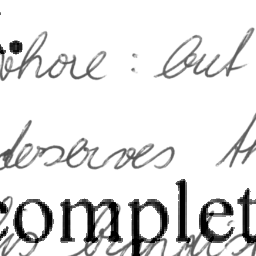 whore : but
deserves th
complet